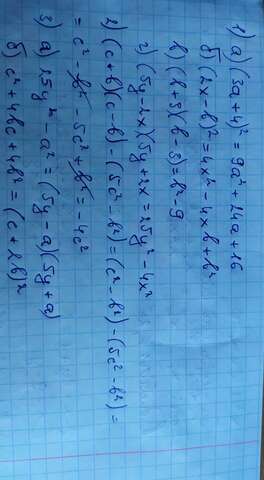 1) а) (3a+4)² = 9a² + 24a + 16
б) (2x - b)² = 4x² - 4xb + b²
в) (b+3)(b-3) = b² - 9
г) (5y-2x)(5y+2x = 25y² - 4x²
2) (c+b)(c-b) - (5c² - b²) = (c² - b²) - (5c² - b²) =
= c² - b² - 5c² + b² = -4c²
3) а) 25y² - a² = (5y - a)(5y + a)
б) c² + 4bc + 4b² = (c + 2b)²